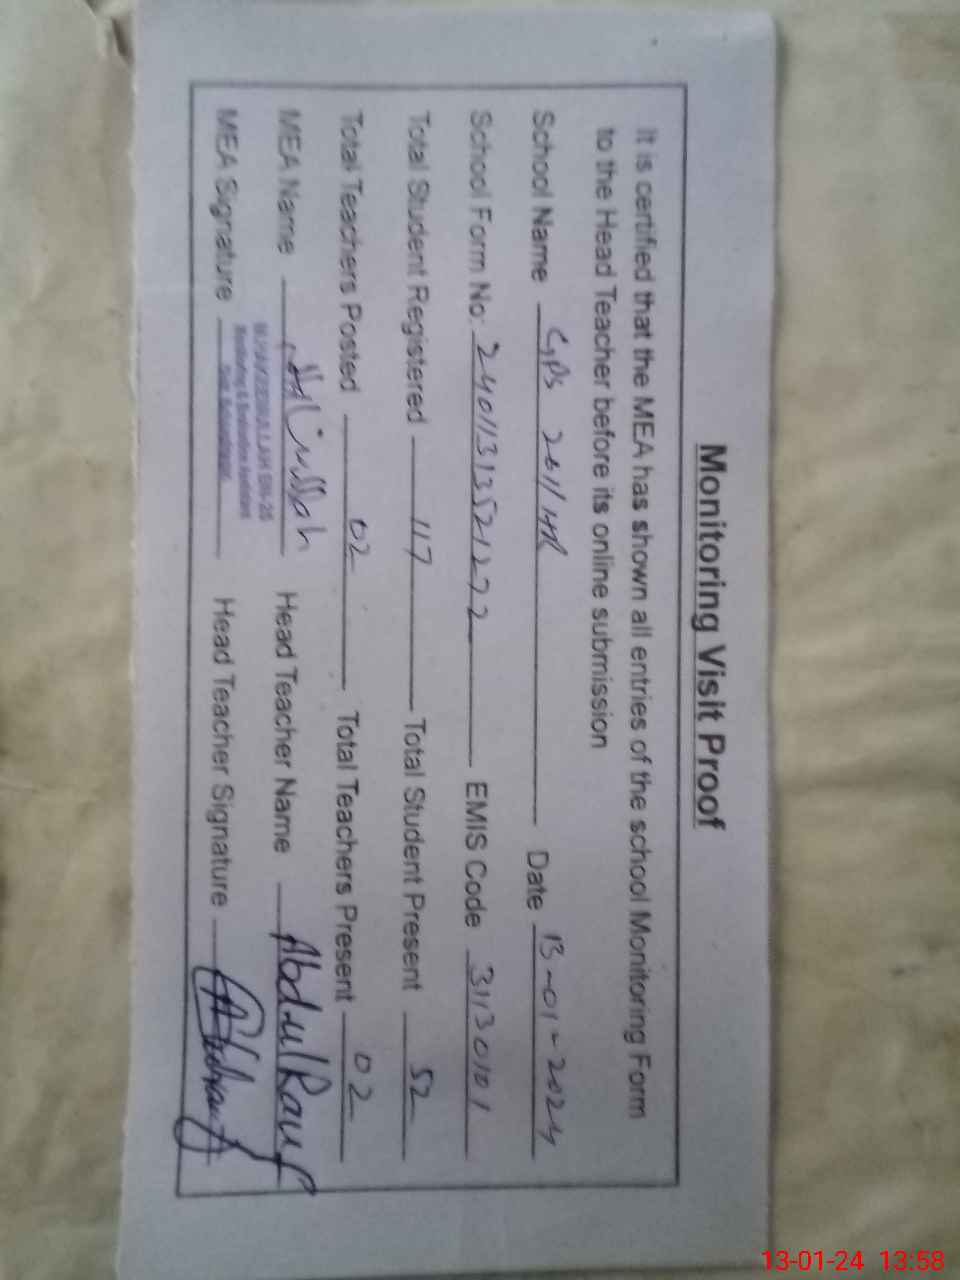 Monitoring Visit Proof
It is certified that the MEA has shown all entries of the school Monitoring Form
to the Head Teacher before its online submission
School Name GPS 201/HR Date 13-01-2024
School Form No: 24011313521272 EMIS Code 31130101
Total Student Registered 117 Total Student Present 52
Total Teachers Posted 02 Total Teachers Present 02
MEA Name Head Teacher Name Abdul Rauf
MEA Signature Head Teacher Signature
Monitoring & Evaluation Assistant
13-01-24 13:58